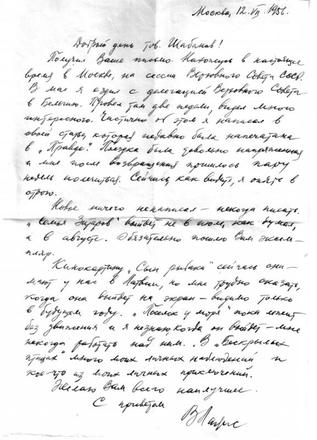 Москва, 12.VII. 1956.
Добрый день тов. Шабанов!
Получил Ваше письмо. Нахожусь в настоящее
время в Москве, на сессии Верховного Совета СССР.
В мае я ездил с делегацией Верховного Совета
в Бельгию. Провел там две недели, видел много
интересного. Частично об этом я написал в
своей статье, которая недавно была напечатана
в "Правде". Поездка была довольно напряженная
и мне после возвращения пришлось пару
недель полечиться. Сейчас, как видите, я опять в
строю.
Нового ничего не написал – некогда писать.
"Семья Зитаров" выйдет не в июле, как думал,
а в августе. Обязательно пошлю Вам экзем-
пляр.
Кинокартину "Сын рыбака" сейчас сни-
мают у нас в Латвии, но мне трудно сказать,
когда она выйдет на экран – видимо только
в будущем году. "Поселок у моря" пока лежит
без движения и я не знаю, когда он выйдет – мне
некогда работать над ним. В "Бескрылых
птицах" много моих личных наблюдений и
кое-что из моих личных приключений.
Желаю Вам всего наилучшего.
С приветом
В Лацис